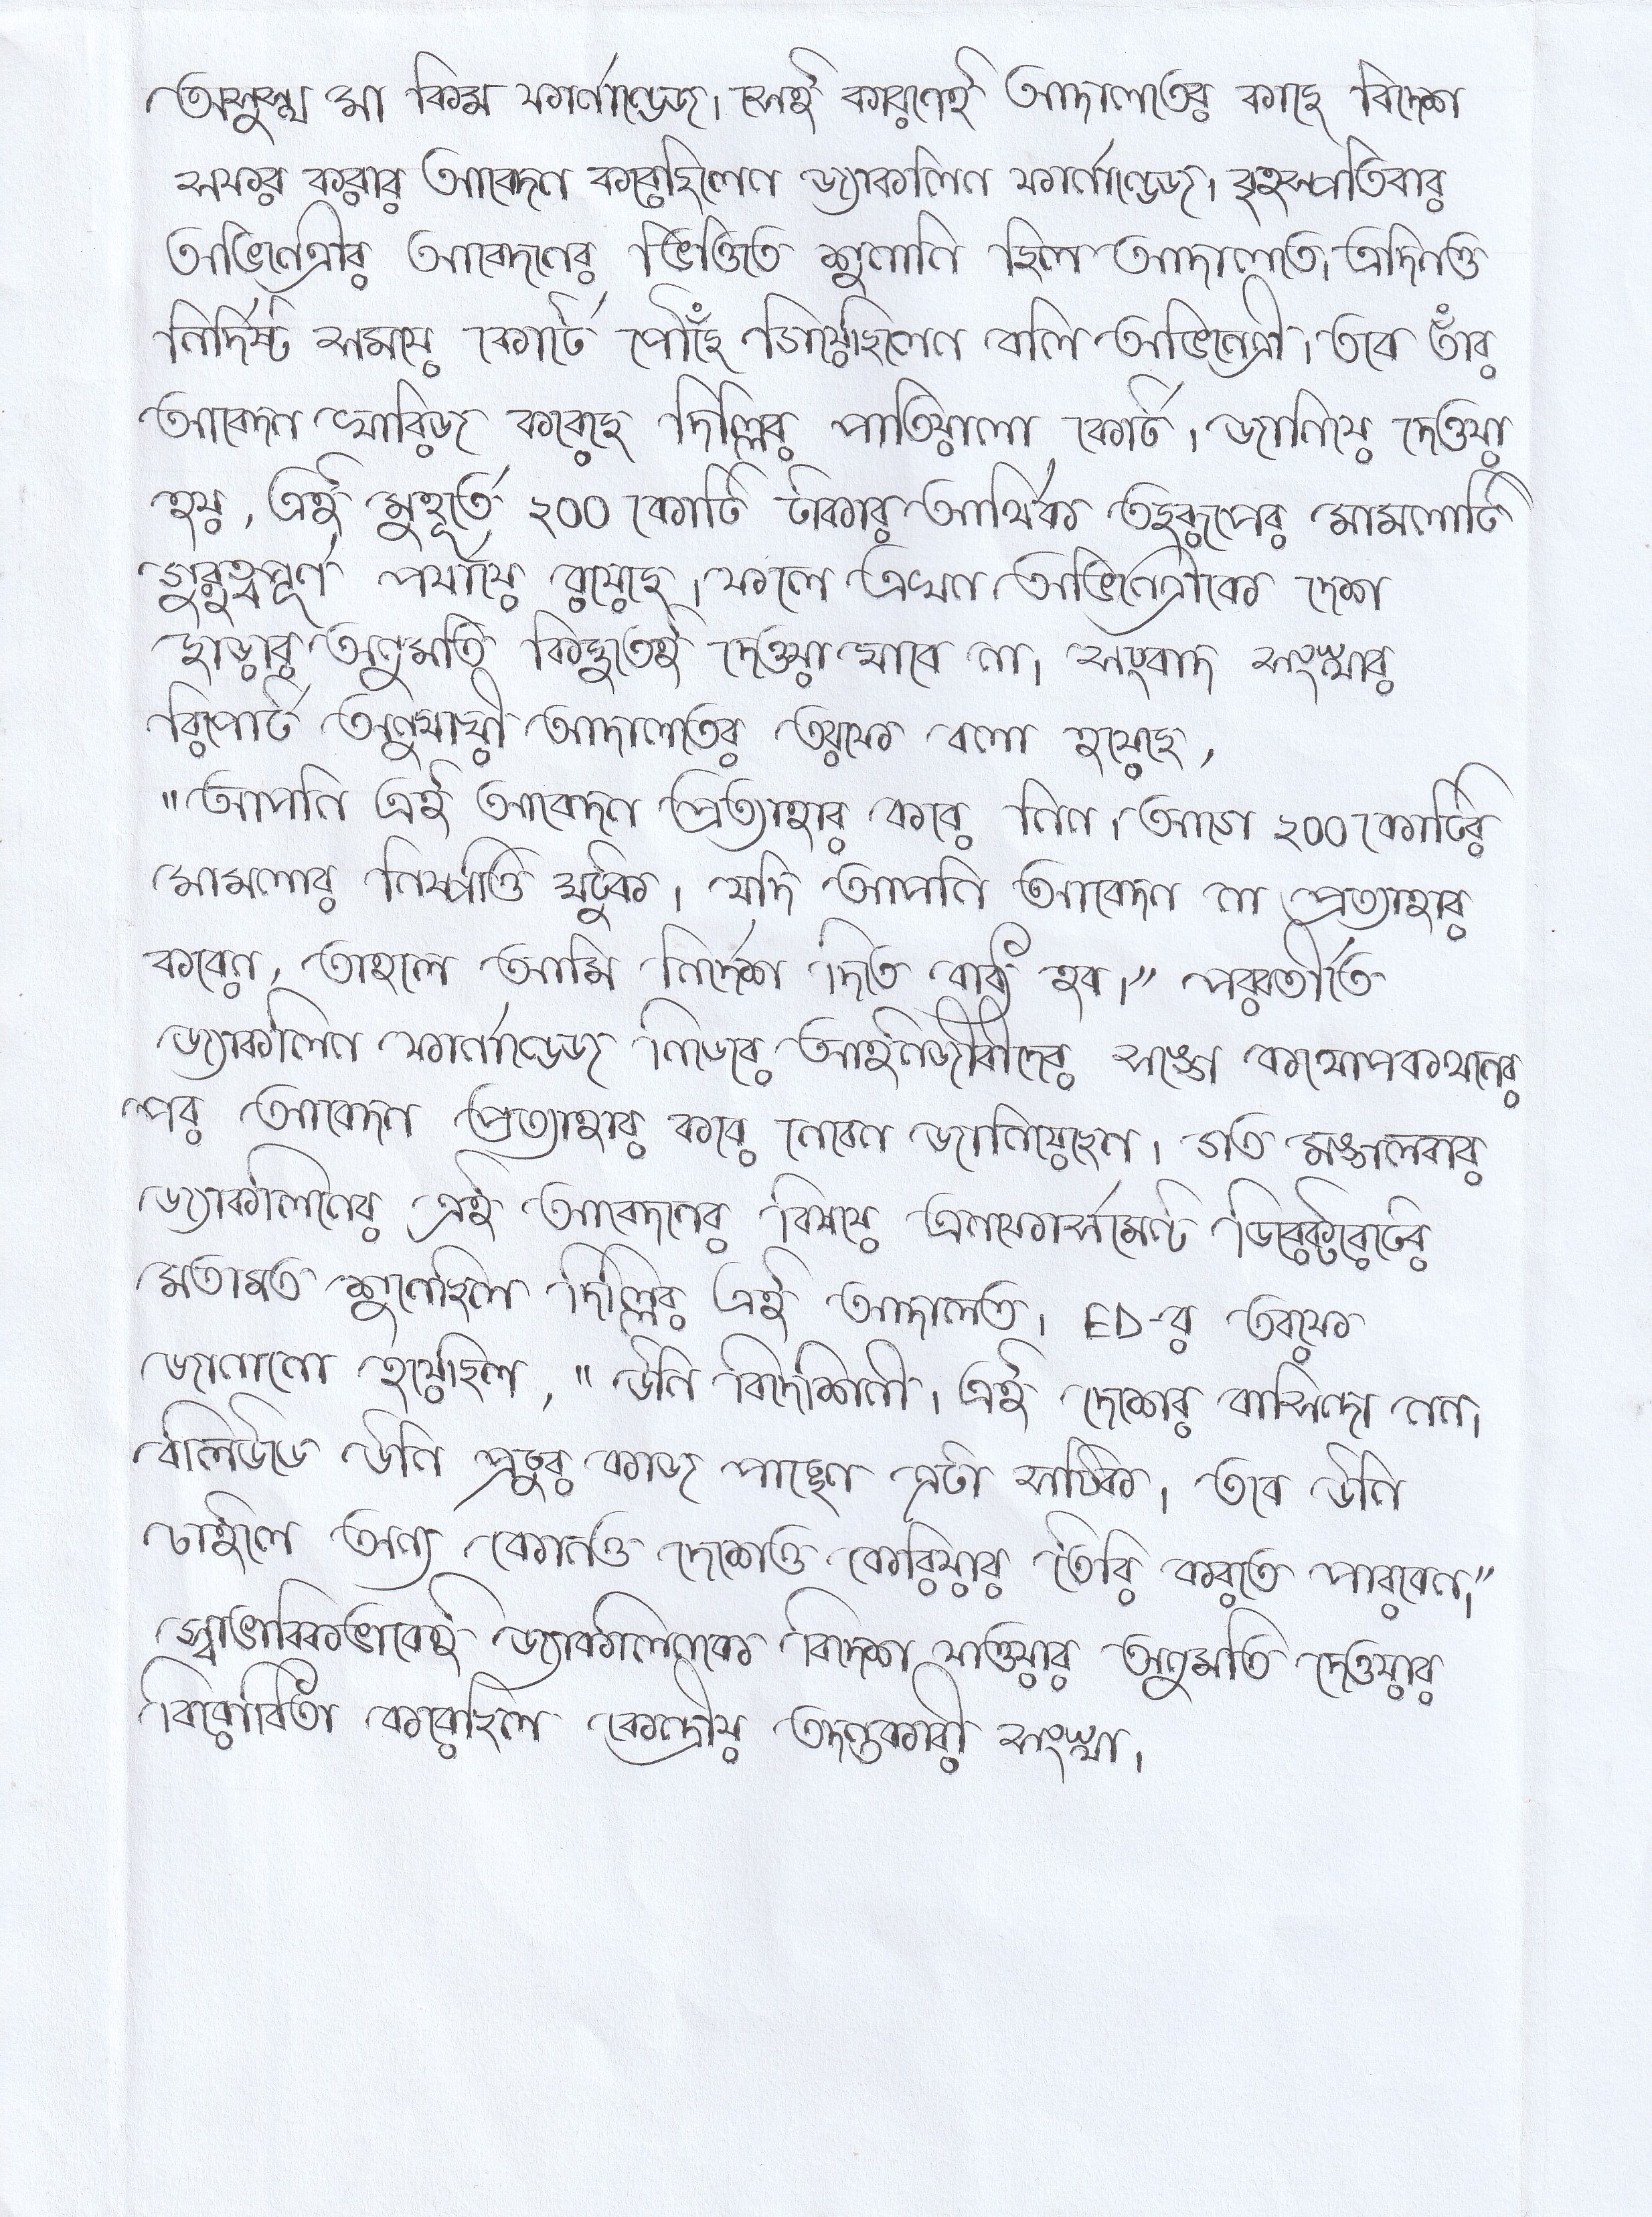 অসুস্থ মা কিম ফার্নান্ডেজ। সেই কারণেই আদালতের কাছে বিদেশ
সফর করার আবেদন করেছিলেন জ্যাকলিন ফার্নান্ডেজ। বৃহস্পতিবার
অভিনেত্রীর আবেদনের ভিত্তিতে শুনানি ছিল আদালতে। এদিনও
নির্দিষ্ট সময়ে কোর্টে পৌঁছে গিয়েছিলেন বলি অভিনেত্রী। তবে তাঁর
আবেদন খারিজ করেছে দিল্লির পাতিয়ালা কোর্ট। জানিয়ে দেওয়া
হয়, এই মুহূর্তে ২০০ কোটি টাকার আর্থিক তছরূপের মামলাটি
গুরুত্বপূর্ণ পর্যায়ে রয়েছে। ফলে এখন অভিনেত্রীকে দেশ
ছাড়ার অনুমতি কিছুতেই দেওয়া যাবে না। সংবাদ সংস্থার
রিপোর্ট অনুযায়ী আদালতের তরফে বলা হয়েছে,
"আপনি এই আবেদন প্রত্যাহার করে নিন। আগে ২০০ কোটির
মামলার নিষ্পত্তি ঘটুক। যদি আপনি আবেদন না প্রত্যাহার
করেন, তাহলে আমি নির্দেশ দিতে বাধ্য হব।" পরবর্তীতে
জ্যাকলিন ফার্নান্ডেজ নিজের আইনজীবীদের সঙ্গে কথোপকথনের
পর আবেদন প্রত্যাহার করে নেবেন জানিয়েছেন। গত মঙ্গলবার
জ্যাকলিনের এই আবেদনের বিষয়ে এনফোর্সমেন্ট ডিরেক্টরেটের
মতামত শুনেছিল দিল্লির এই আদালত। ED-র তরফে
জানানো হয়েছিল, "উনি বিদেশিনী। এই দেশের বাসিন্দা নন।
বলিউডে উনি প্রচুর কাজ পাচ্ছেন এটা সঠিক। তবে উনি
চাইলে অন্য কোনও দেশেও কেরিয়ার তৈরি করতে পারবেন।"
স্বাভাবিকভাবেই জ্যাকলিনকে বিদেশ যাওয়ার অনুমতি দেওয়ার
বিরোধিতা করেছিল কেন্দ্রীয় তদন্তকারী সংস্থা।